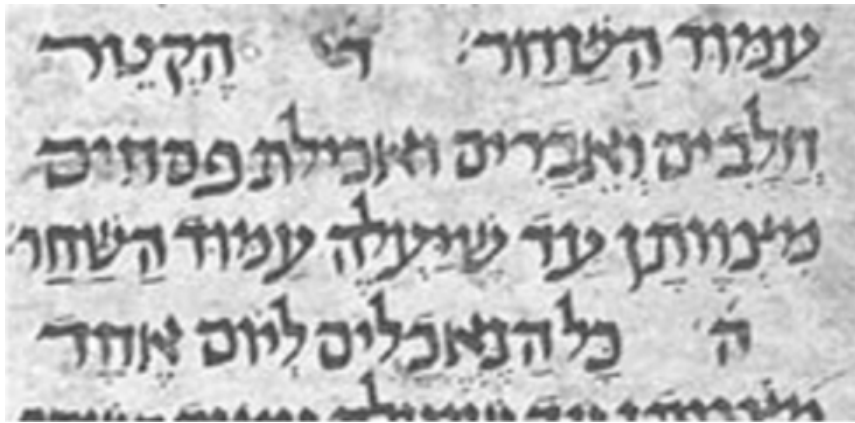 עַמּוּד הַשַּׁחַר׃ ד׳ הֶקְטֵיר
חֲלָבִים וְאֵבָרִים ואכילת פסחים
מִצְוָותָן עַד שֶׁיַּעֲלֶה עַמּוּד הַשַּׁחַר
ה׳ כָּל הַנֶּאֱכָלִים לְיוֹם אֶחָד